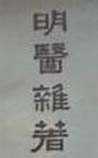 明醫雜著